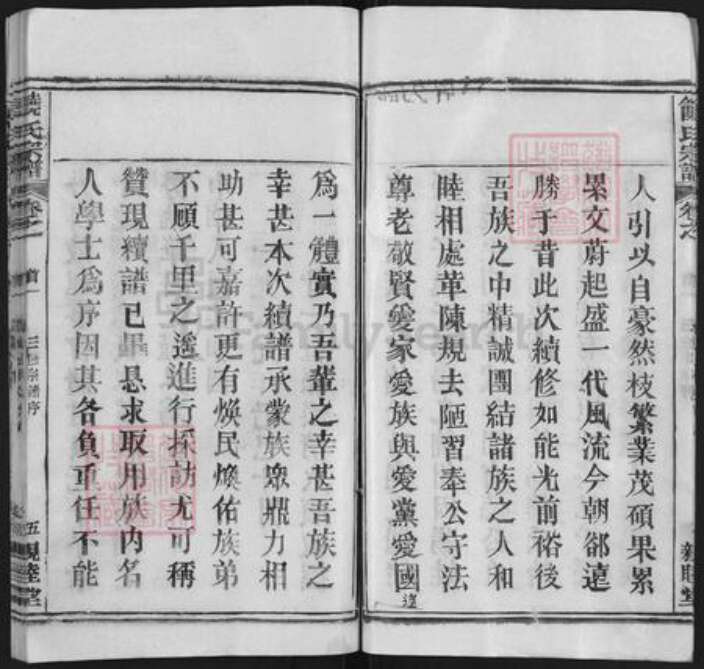 人引以自豪然枝繁葉茂碩果累
果文蔚起盛一代風流今朝郤遠
勝于昔此次續修如能光前裕後
吾族之中精誠團結諸族之人和
睦相處革陳規去陋習奉公守法
尊老敬賢愛家愛族與愛黨愛國
爲一體實乃吾輩之幸甚吾族之
幸甚本次續譜承蒙族眾鼎力相
助甚可嘉許更有煥民煥佑族弟
不顧千里之遥進行採訪尤可稱
贊現續譜已畢懇求取用族内名
人學士爲序因其各負重任不能
氏宗譜
卷之
首
三
序
五
睦堂